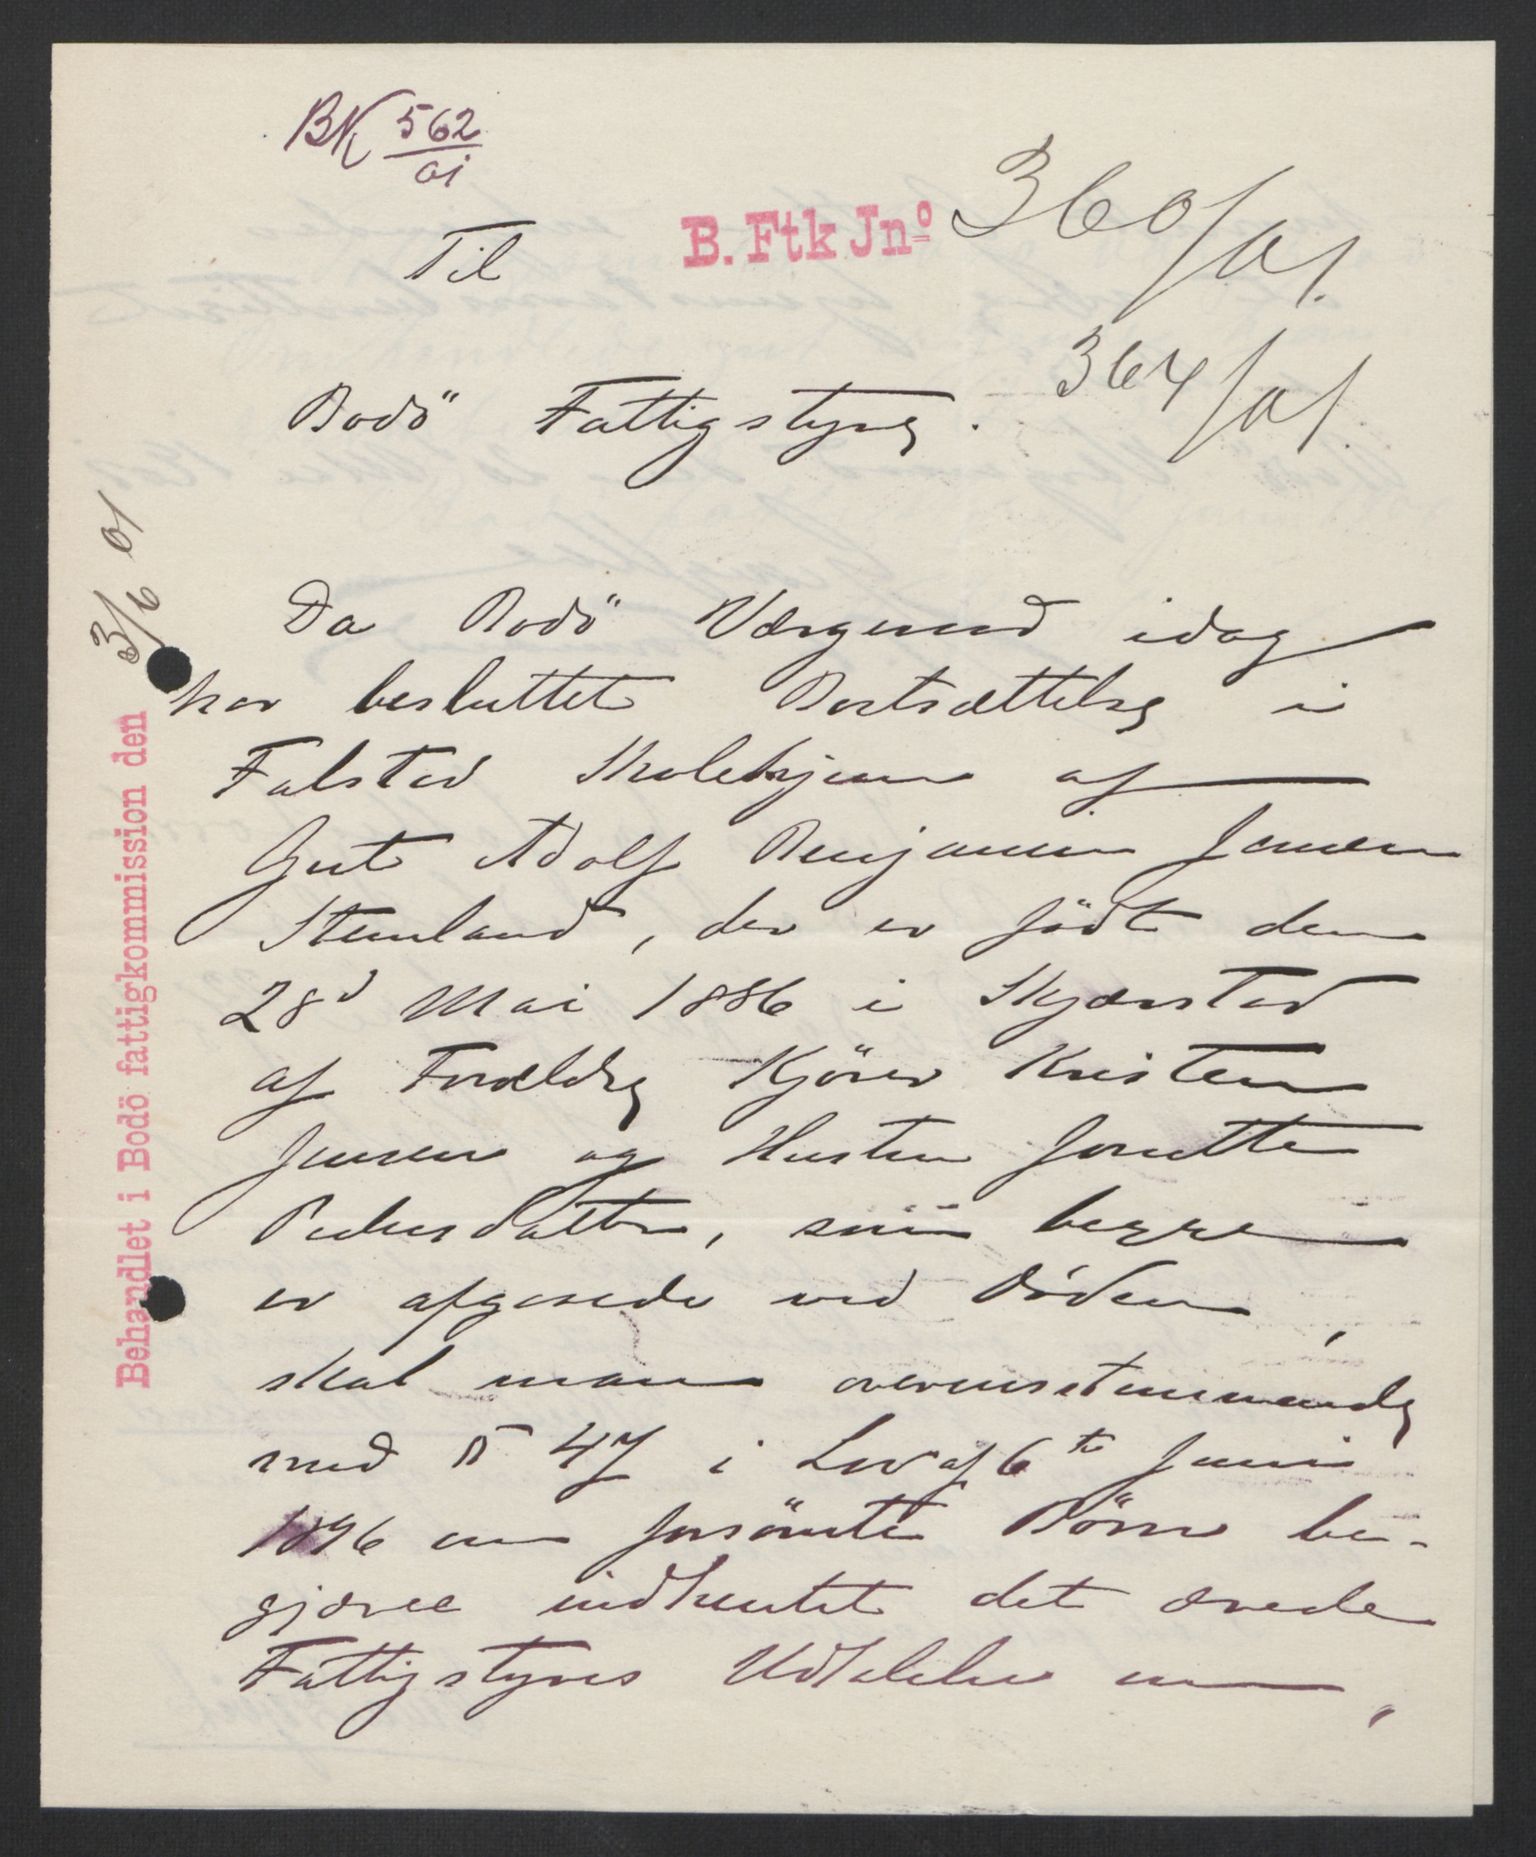 BK 562/01
Til
B. Ftk Jnº 360/01.
364/01.
Bodö Fattigstyre.
Da Bodö Værgeraad idag
har besluttet Bortsættelse i
Falstad Skolehjem af
Gut Adolf Benjamin Jensen
Stemland, der er födt den
28d Mai 1886 i Skjærstad
af Forældre Kjörer Kristen
Jensen og Hustru Jonette
Pedersdatter, som begge
er afgaaede ved Döden,
skal man overensstemmende
med § 47 i Lov af 6te Juni
1896 om forsömte Börn be-
gjære indhentet det ærede
Fattigstyres Udtalelse om,
Behandlet i Bodö fattigkommission den 3/6 01